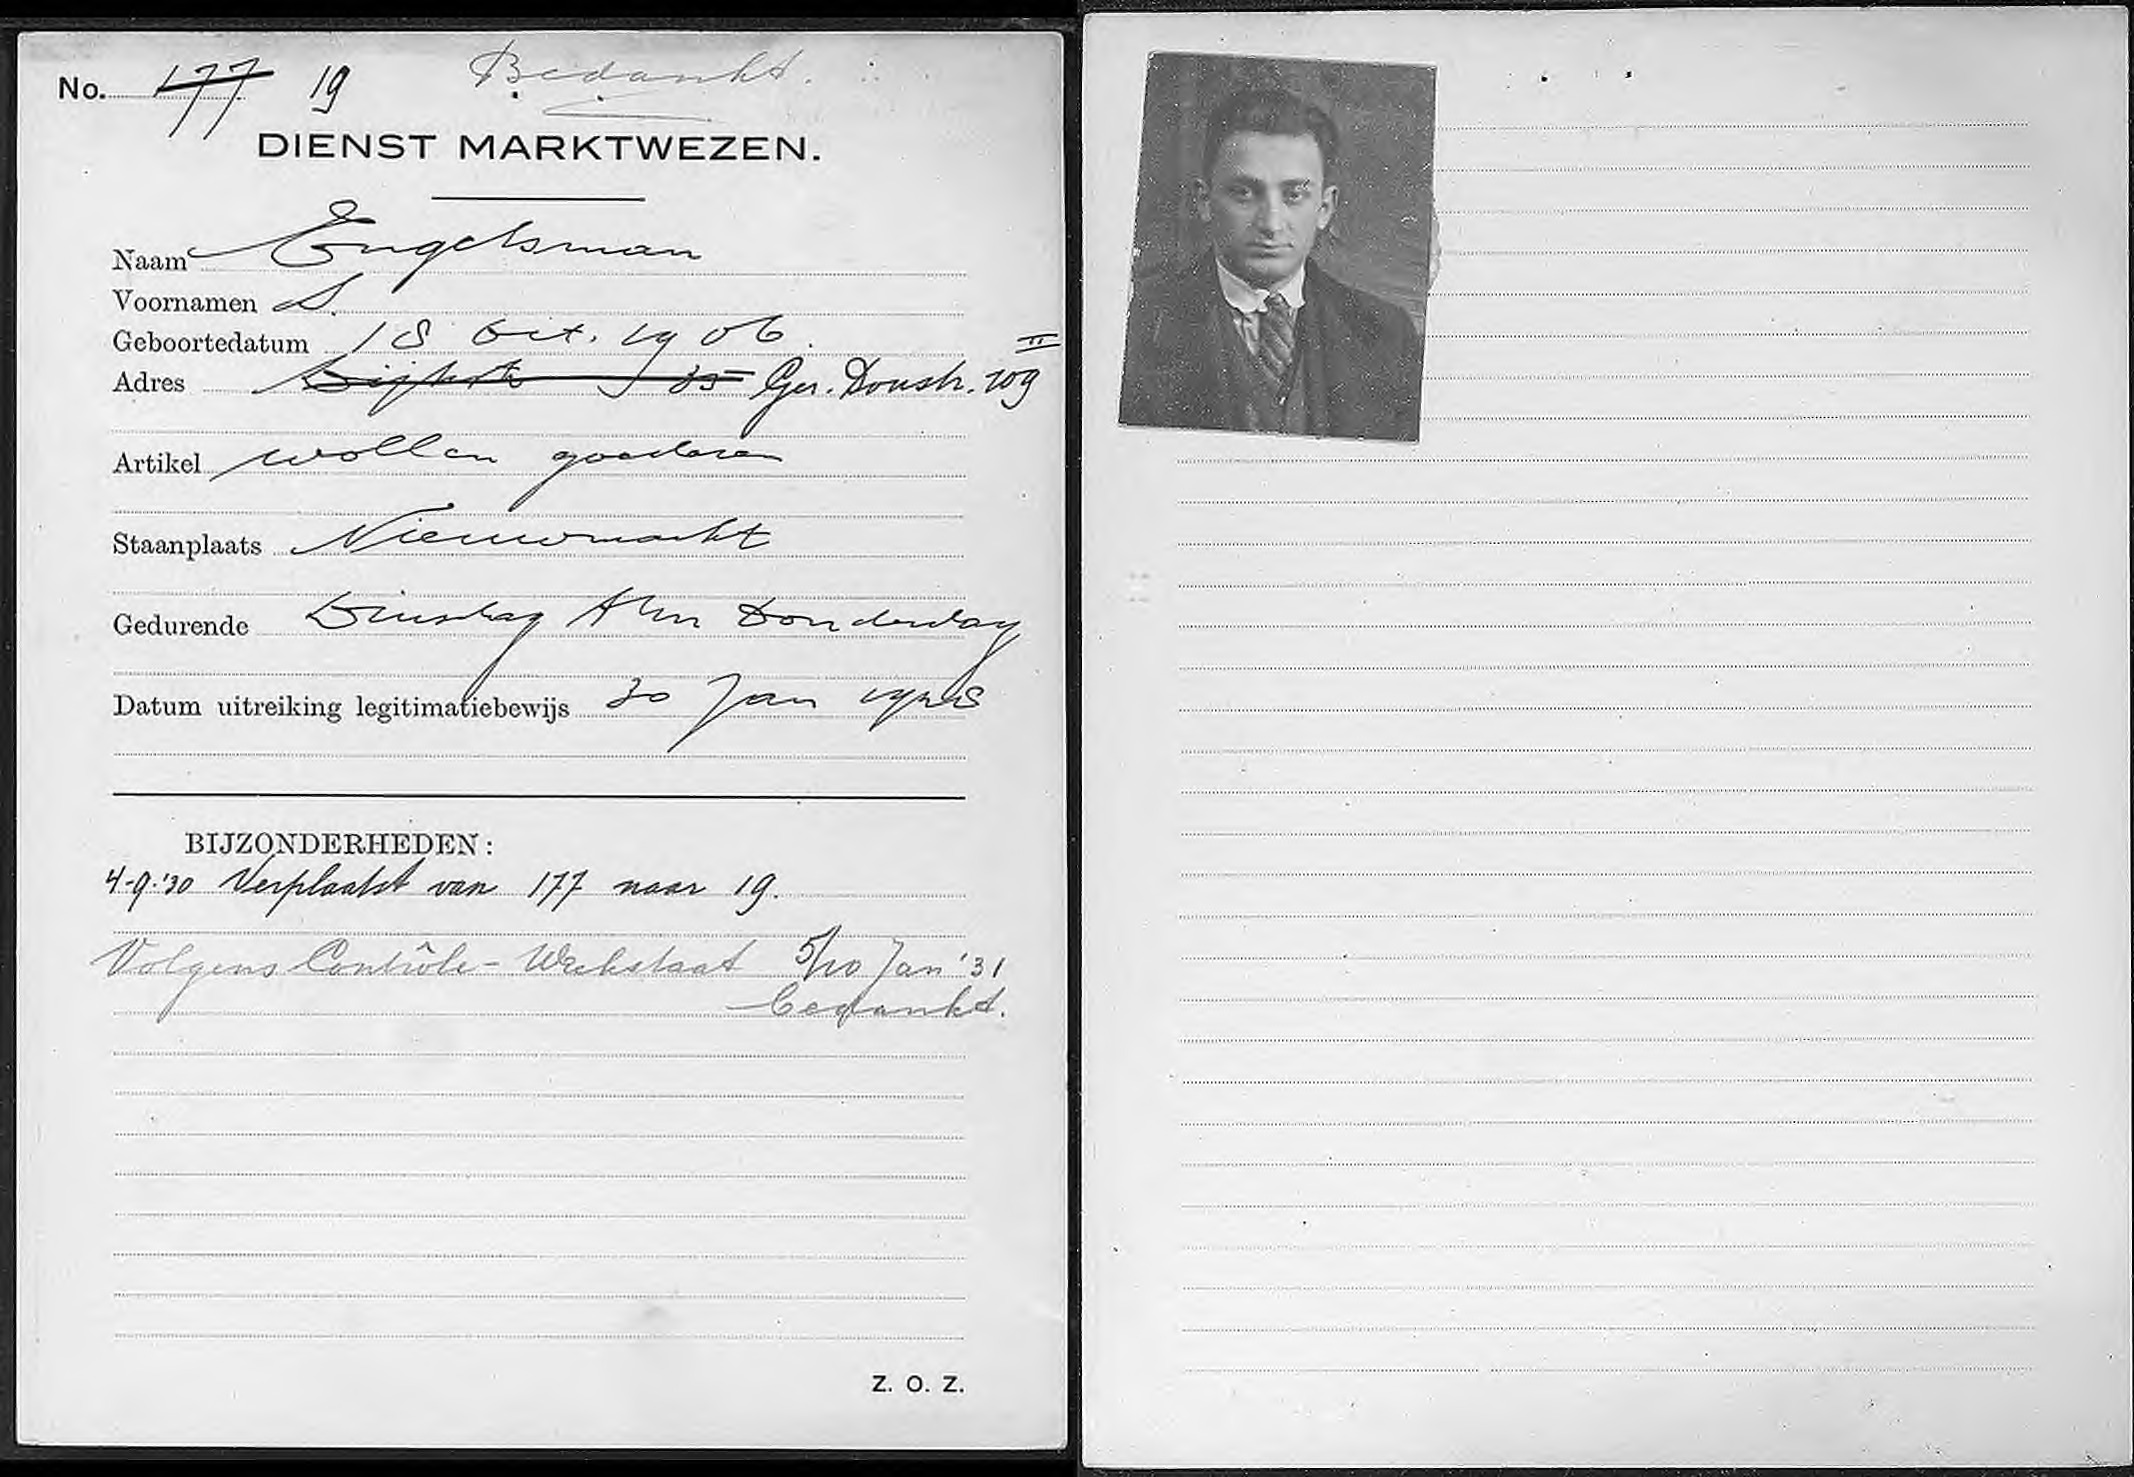 No. 177 19 Bedankt.
DIENST MARKTWEZEN.
Naam Engelsman
Voornamen S.
Geboortedatum 18 Oct. 1906. II
Adres 35 Ger. Doustr. 209
Artikel wollen goederen
Staanplaats Nieuwmarkt
Gedurende Dinsdag t/m Donderdag
Datum uitreiking legitimatiebewijs 30 Jan 1928
BIJZONDERHEDEN:
4-9-'30 Verplaatst van 177 naar 19.
Volgens Contrôle-Weekstaat 5/10 Jan '31
bedankt.
Z. O. Z.